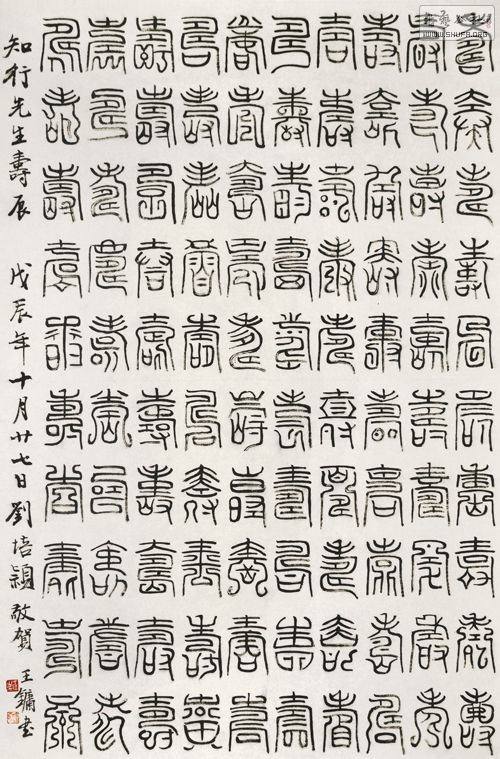 壽壽壽壽壽壽壽壽壽壽
壽壽壽壽壽壽壽壽壽壽
壽壽壽壽壽壽壽壽壽壽
壽壽壽壽壽壽壽壽壽壽
壽壽壽壽壽壽壽壽壽壽
壽壽壽壽壽壽壽壽壽壽
壽壽壽壽壽壽壽壽壽壽
壽壽壽壽壽壽壽壽壽壽
壽壽壽壽壽壽壽壽壽壽
壽壽壽壽壽壽壽壽壽壽
知行先生壽辰 戊辰年十月廿七日劉培穎敬賀 王鏞書
WWW.SHUFA.ORG